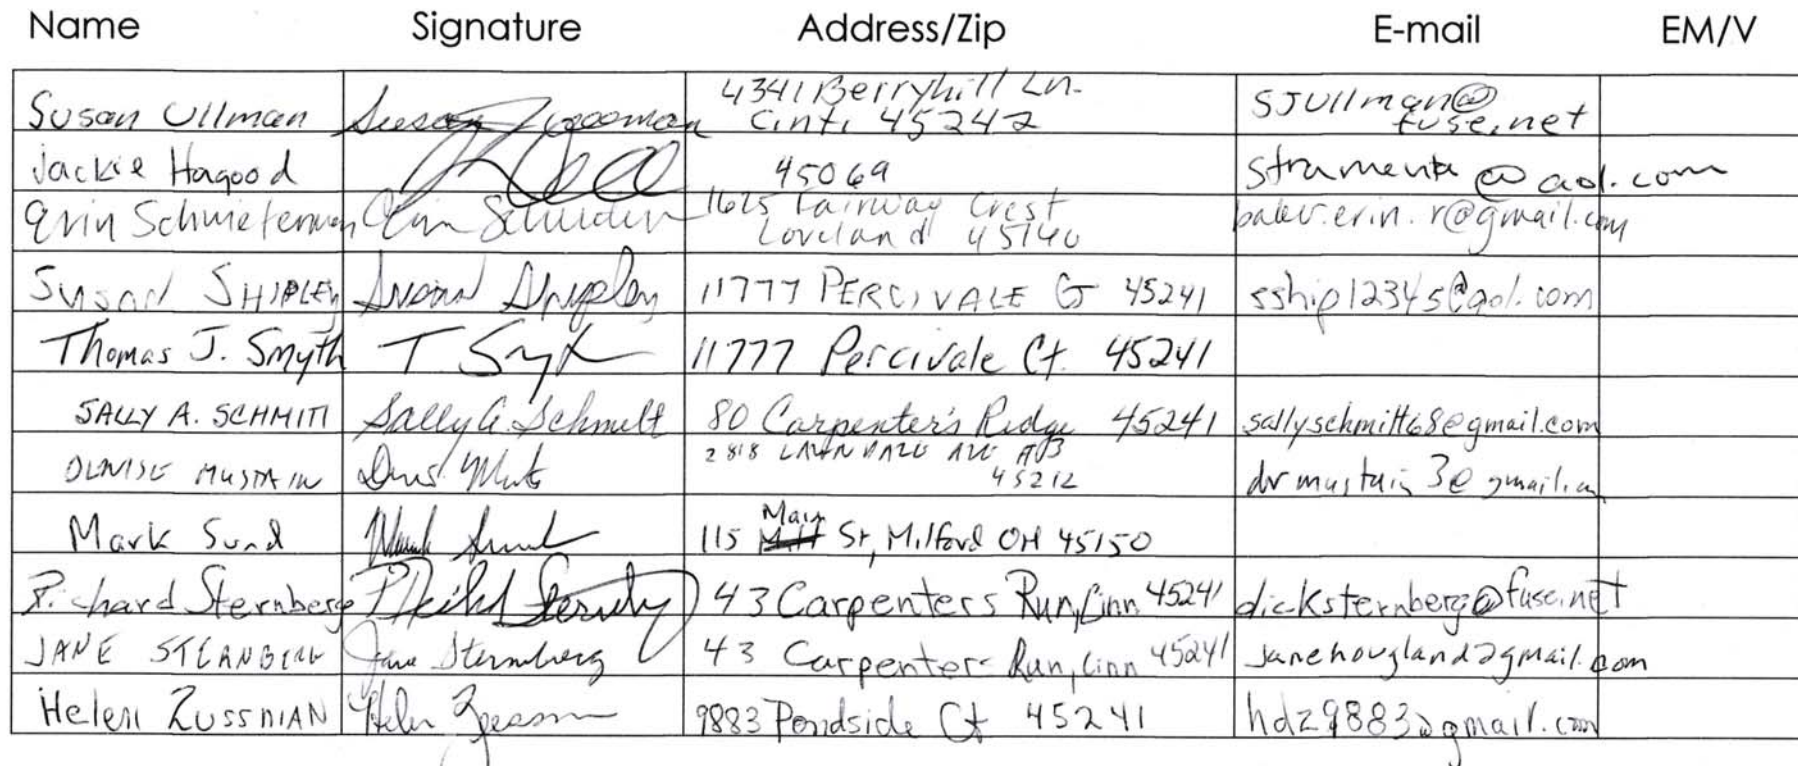 Name Signature Address/Zip E-mail EM/V
Susan Ullman 4341 Berryhill Ln. SJUllman@
Cinti 45242 fuse.net
Jackie Hagood 45069 stramenta@aol.com
Erin Schmieterman 1625 Fairway Crest baker.erin.r@gmail.com
Loveland 45140
Susan SHIPLEY Susan Shipley 11777 PERCIVALE Ct 45241 sship12345@aol.com
Thomas J. Smyth T Smyth 11777 Percivale Ct. 45241
SALLY A. SCHMITT Sally A. Schmitt 80 Carpenter's Ridge 45241 sallyschmitt68@gmail.com
DENISE MUSTAIN 2818 LAWNDALE AVE Ap3 drmustain3@gmail.com
45212
Main
Mark Sund Mark Sund 115 St, Milford OH 45150
Richard Sternberg 43 Carpenters Run, Cinn 45241 dicksternberg@fuse.net
JANE STERNBERG Jane Sternberg 43 Carpenters Run, Cinn 45241 janehougland@gmail.com
Helen ZUSSMAN Helen 9883 Pondside Ct 45241 hdz9883@gmail.com